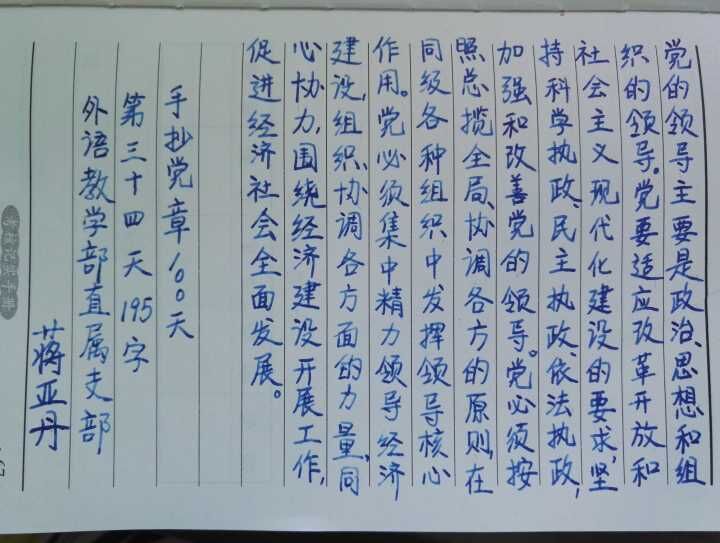 党的领导主要是政治、思想和组
织的领导。党要适应改革开放和
社会主义现代化建设的要求,坚
持科学执政、民主执政、依法执政,
加强和改善党的领导。党必须按
照总揽全局、协调各方的原则,在
同级各种组织中发挥领导核心
作用。党必须集中精力领导经济
建设,组织、协调各方面的力量,同
心协力,围绕经济建设开展工作,
促进经济社会全面发展。
手抄党章100天
第三十四天 195字
外语教学部直属支部
蒋亚丹